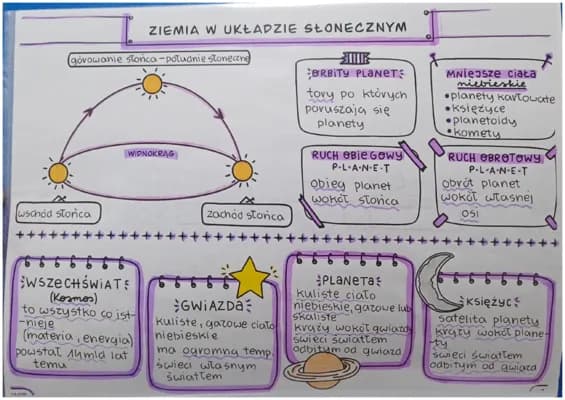 ZIEMIA W UKŁADZIE SŁONECZNYM
górowanie słońca - południe słoneczne
WIDNOKRĄG
wschód słońca
zachód słońca
ORBITY PLANET
tory po których
poruszają się
planety
MNIEJSZE CIAŁA
niebieskie
• planety karłowate
• księżyce
• planetoidy
• komety
RUCH OBIEGOWY
P-L-A-N-E-T
obieg planet
wokół słońca
RUCH OBROTOWY
P-L-A-N-E-T
obrót planet
wokół własnej
osi
WSZECHŚWIAT
(Kosmos)
to wszystko co ist-
nieje
(materia, energia)
powstał 14 mld lat
temu
GWIAZDA
kuliste, gazowe ciało
niebieskie
ma ogromną temp.
świeci własnym
światłem
PLANETA
kuliste ciało
niebieskie, gazowe lub
skaliste
krąży wokół gwiazdy
świeci światłem
odbitym od gwiazd
KSIĘŻYC
satelita planety
krąży wokół plane-
ty
świeci światłem
odbitym od gwiazd